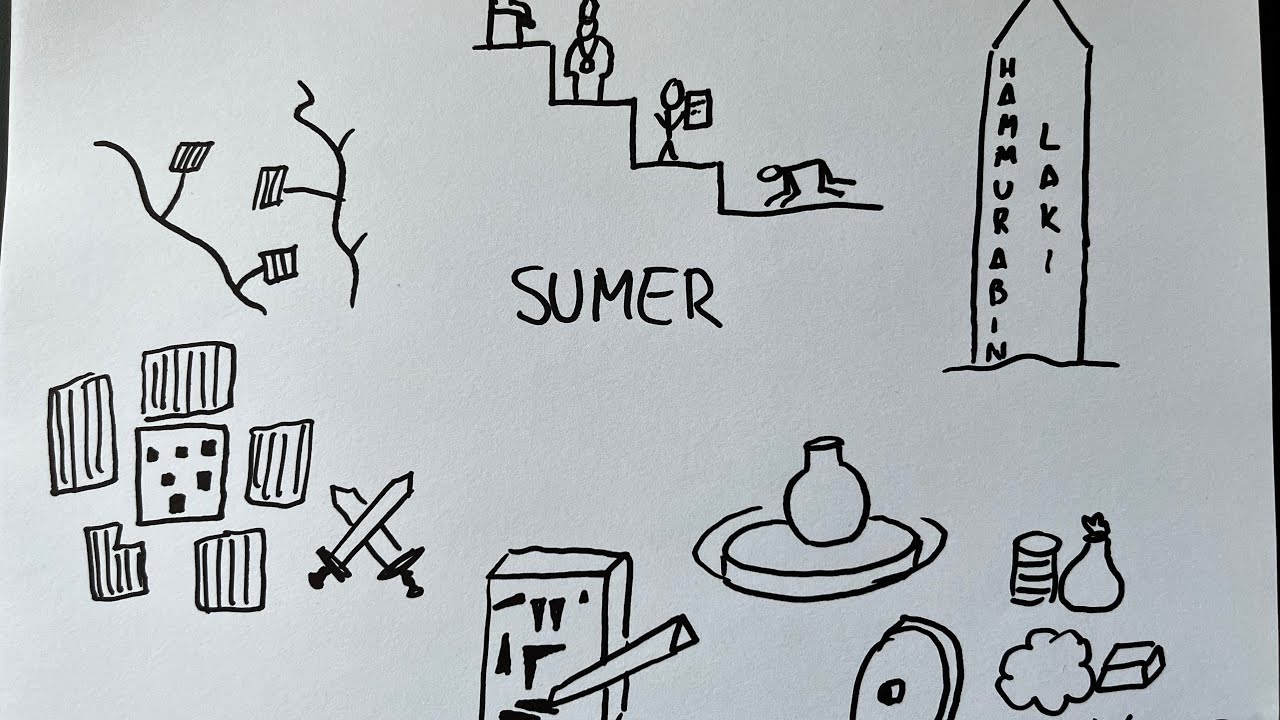 HAMMURABIN
LAKI
SUMER